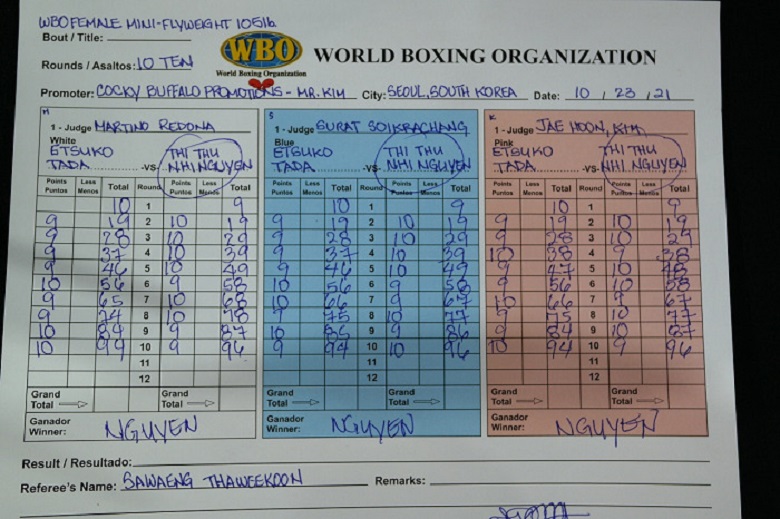 WBO FEMALE MINI-FLYWEIGHT 105lb
Bout / Title:
WBO
World Boxing Organization
WORLD BOXING ORGANIZATION
Rounds / Asaltos: 10 TEN
Promoter: COCKY BUFFALO PROMOTIONS - MR. KIM City: SEOUL, SOUTH KOREA Date: 10 / 23 / 21
1 - Judge MARTINO REDONA 1 - Judge SURAT SOIKRACHANG 1 - Judge JAE HOON, KIM
White Blue Pink
ETSUKO THI THU ETSUKO THI THU ETSUKO THI THU
TADA -VS- NHI NGUYEN TADA -VS- NHI NGUYEN TADA -VS- NHI NGUYEN
Points Less Total Round Points Less Total Points Less Total Round Points Less Total Points Less Total Round Points Less Total
Puntos Menos Puntos Menos Puntos Menos Puntos Menos Puntos Menos Puntos Menos
10 1 9 10 1 9 10 1 9
9 19 2 10 19 9 19 2 10 19 9 19 2 10 19
9 28 3 10 29 9 28 3 10 29 9 28 3 10 29
9 37 4 10 39 9 37 4 10 39 10 38 4 9 38
9 46 5 10 49 9 46 5 10 49 9 47 5 10 48
10 56 6 9 58 10 56 6 9 58 9 56 6 10 58
9 65 7 10 68 10 66 7 9 67 10 66 7 9 67
9 74 8 10 78 9 75 8 10 77 9 75 8 10 77
10 84 9 9 87 10 85 9 9 86 9 84 9 10 87
10 94 10 9 96 9 94 10 10 96 10 94 10 9 96
11 11 11
12 12 12
Grand Grand Grand Grand Grand Grand
Total Total Total Total Total Total
Ganador Ganador Ganador
Winner: NGUYEN Winner: NGUYEN Winner: NGUYEN
Result / Resultado:
Referee's Name: SAWAENG THAWEEKOON Remarks: